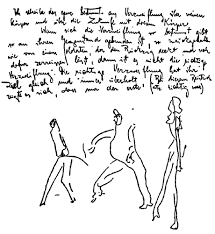 Ich schreibe das ganz bestimmt aus Verzweiflung über meinen
Körper und über die Zukunft mit diesem Körper
Wenn sich die Verzweiflung so bestimmt gibt
so an ihren Gegenstand gebunden ist, so zurückgehalten
wie von einem Soldaten, der den Rückzug deckt und sich
dafür zerreissen lässt, dann ist es nicht die richtige
Verzweiflung. Die richtige Verzweiflung hat ihr
Ziel gleich und immer überholt, (Bei diesem Beistrich
zeigte es sich, dass nur der erste Satz richtig war)